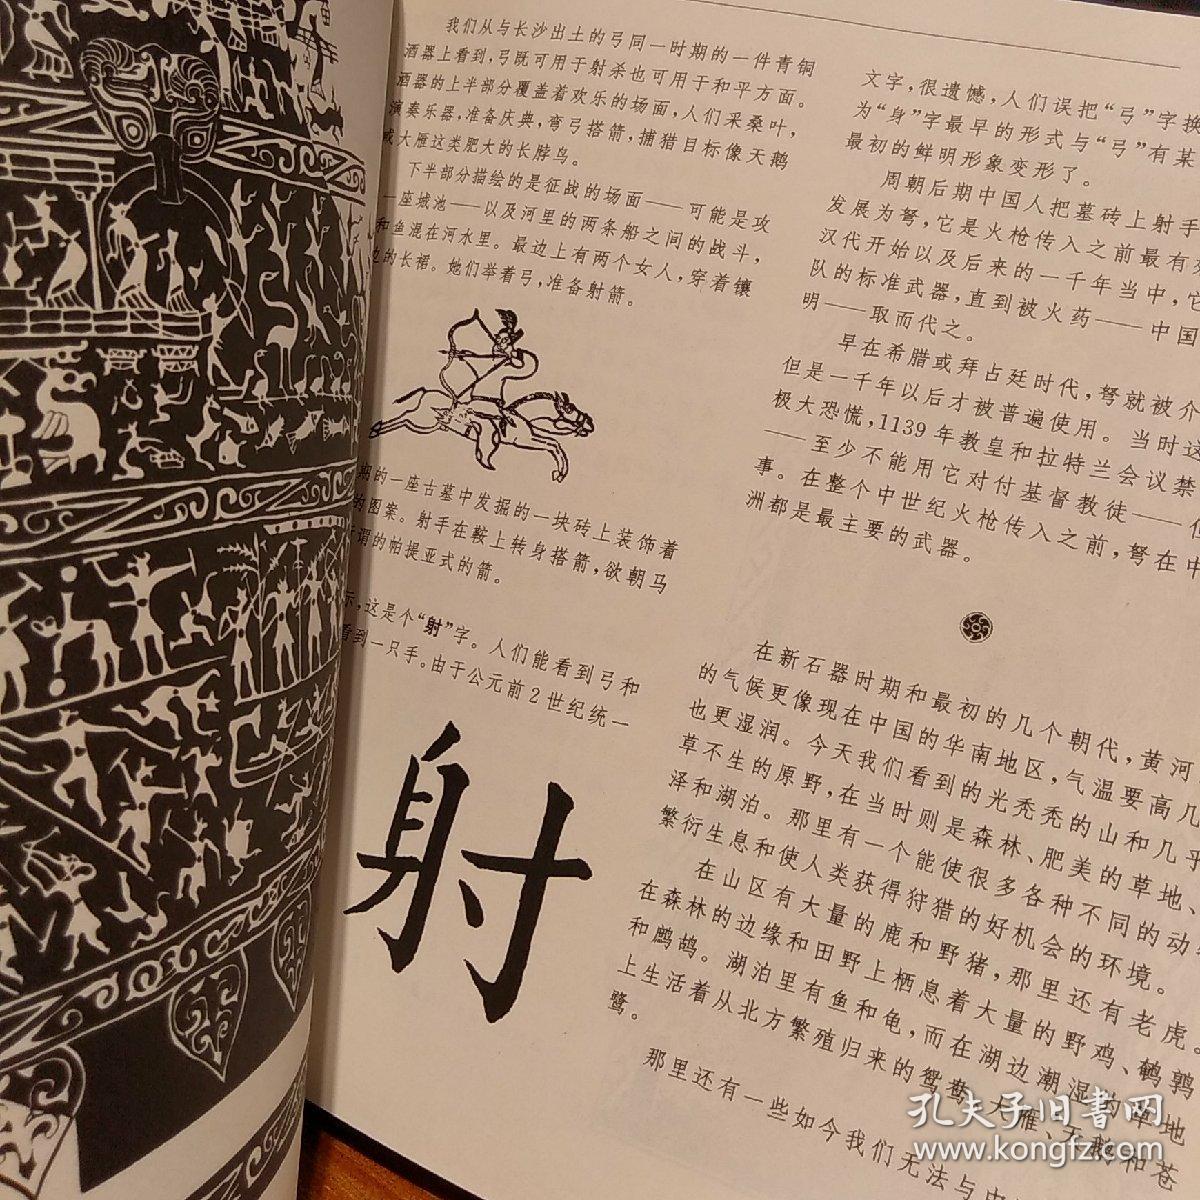 我们从与长沙出土的弓同一时期的一件青铜
酒器上看到,弓既可用于射杀也可用于和平方面。
酒器的上半部分覆盖着欢乐的场面,人们采桑叶,
演奏乐器,准备庆典,弯弓搭箭,捕猎目标像天鹅
或大雁这类肥大的长脖鸟。
下半部分描绘的是征战的场面——可能是攻
一座城池——以及河里的两条船之间的战斗,
和鱼混在河水里。最边上有两个女人,穿着镶
的长裙。她们举着弓,准备射箭。
期的一座古墓中发掘的一块砖上装饰着
的图案。射手在鞍上转身搭箭,欲朝马
谓的帕提亚式的箭。
示,这是个“射”字。人们能看到弓和
看到一只手。由于公元前2世纪统一
射
文字,很遗憾,人们误把“弓”字换
为“身”字最早的形式与“弓”有某
最初的鲜明形象变形了。
周朝后期中国人把墓砖上射手
发展为弩,它是火枪传入之前最有
汉代开始以及后来的一千年当中,它
队的标准武器,直到被火药——中国
明——取而代之。
早在希腊或拜占廷时代,弩就被介
但是一千年以后才被普遍使用。当时这
极大恐慌,1139年教皇和拉特兰会议禁
——至少不能用它对付基督教徒——但
事。在整个中世纪火枪传入之前,弩在中
洲都是最主要的武器。
在新石器时期和最初的几个朝代,黄河
的气候更像现在中国的华南地区,气温要高几
也更湿润。今天我们看到的光秃秃的山和几乎
草不生的原野,在当时则是森林、肥美的草地、
泽和湖泊。那里有一个能使很多各种不同的动
繁衍生息和使人类获得狩猎的好机会的环境。
在山区有大量的鹿和野猪,那里还有老虎。
在森林的边缘和田野上栖息着大量的野鸡、鹌鹑
和鹧鸪。湖泊里有鱼和龟,而在湖边潮湿的草地
上生活着从北方繁殖归来的鸳鸯、大雁、天鹅和苍
鹭。
那里还有一些如今我们无法与中
孔夫子旧书网
www.kongfz.com